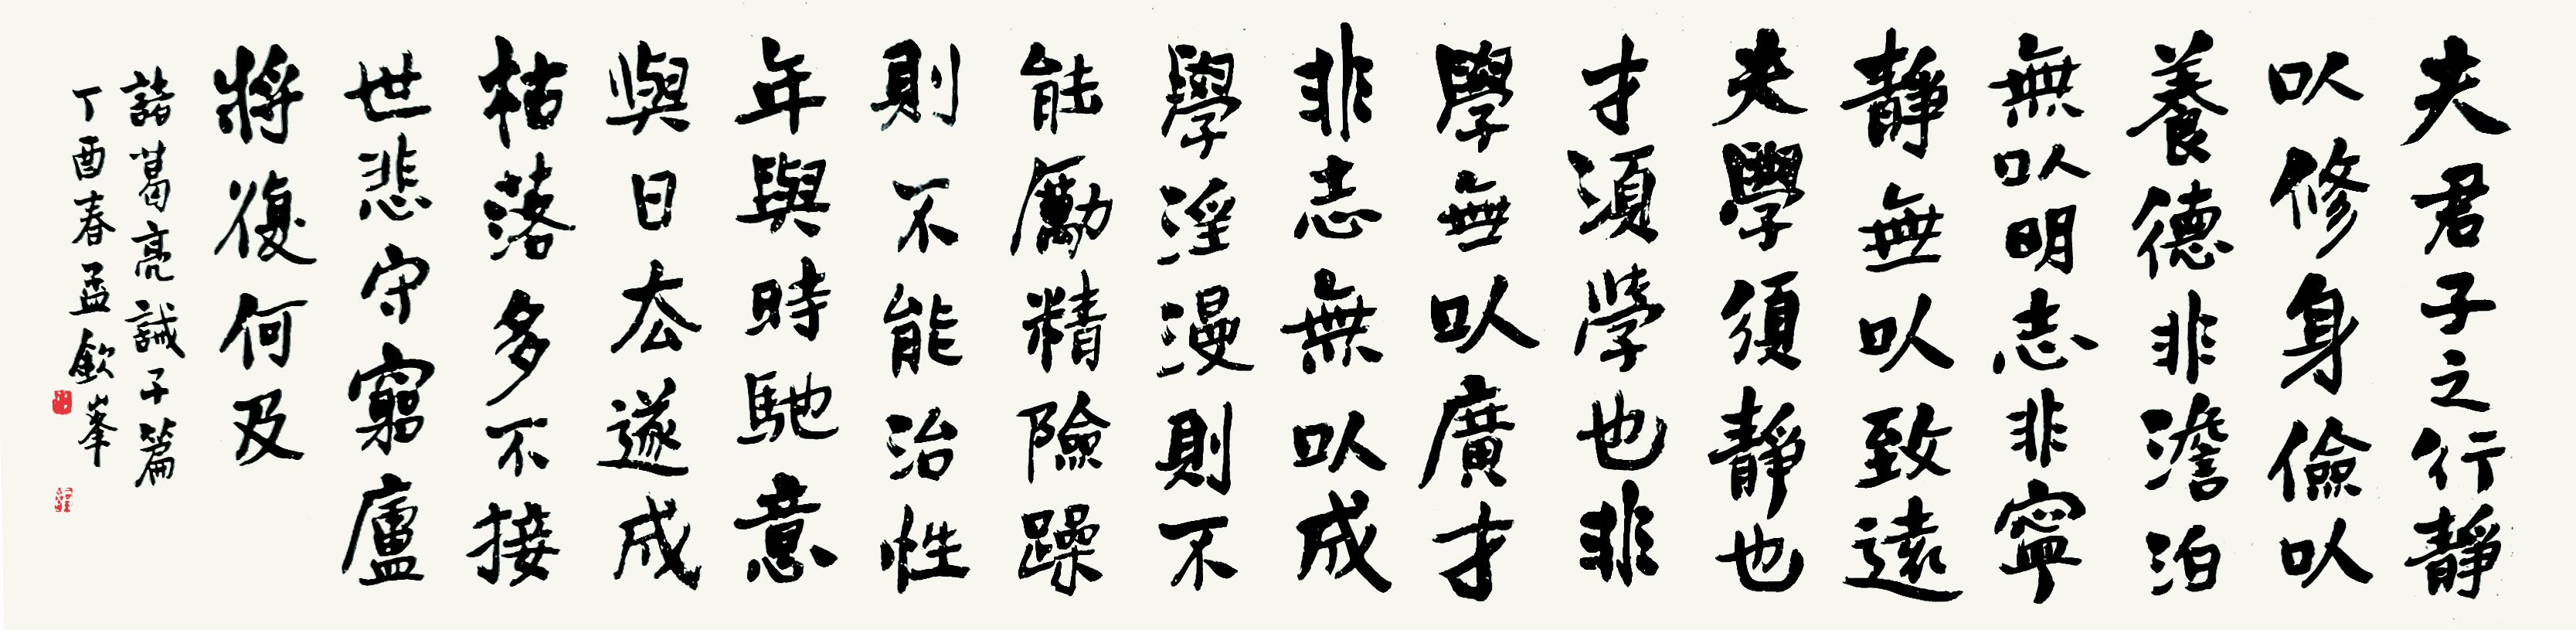 夫君子之行靜
以修身儉以
養德非澹泊
無以明志非寧
靜無以致遠
夫學須靜也
才須學也非
學無以廣才
非志無以成
學淫漫則不
能勵精險躁
則不能治性
年與時馳意
與日去遂成
枯落多不接
世悲守窮廬
將復何及
諸葛亮誡子篇
丁酉春孟欽峯